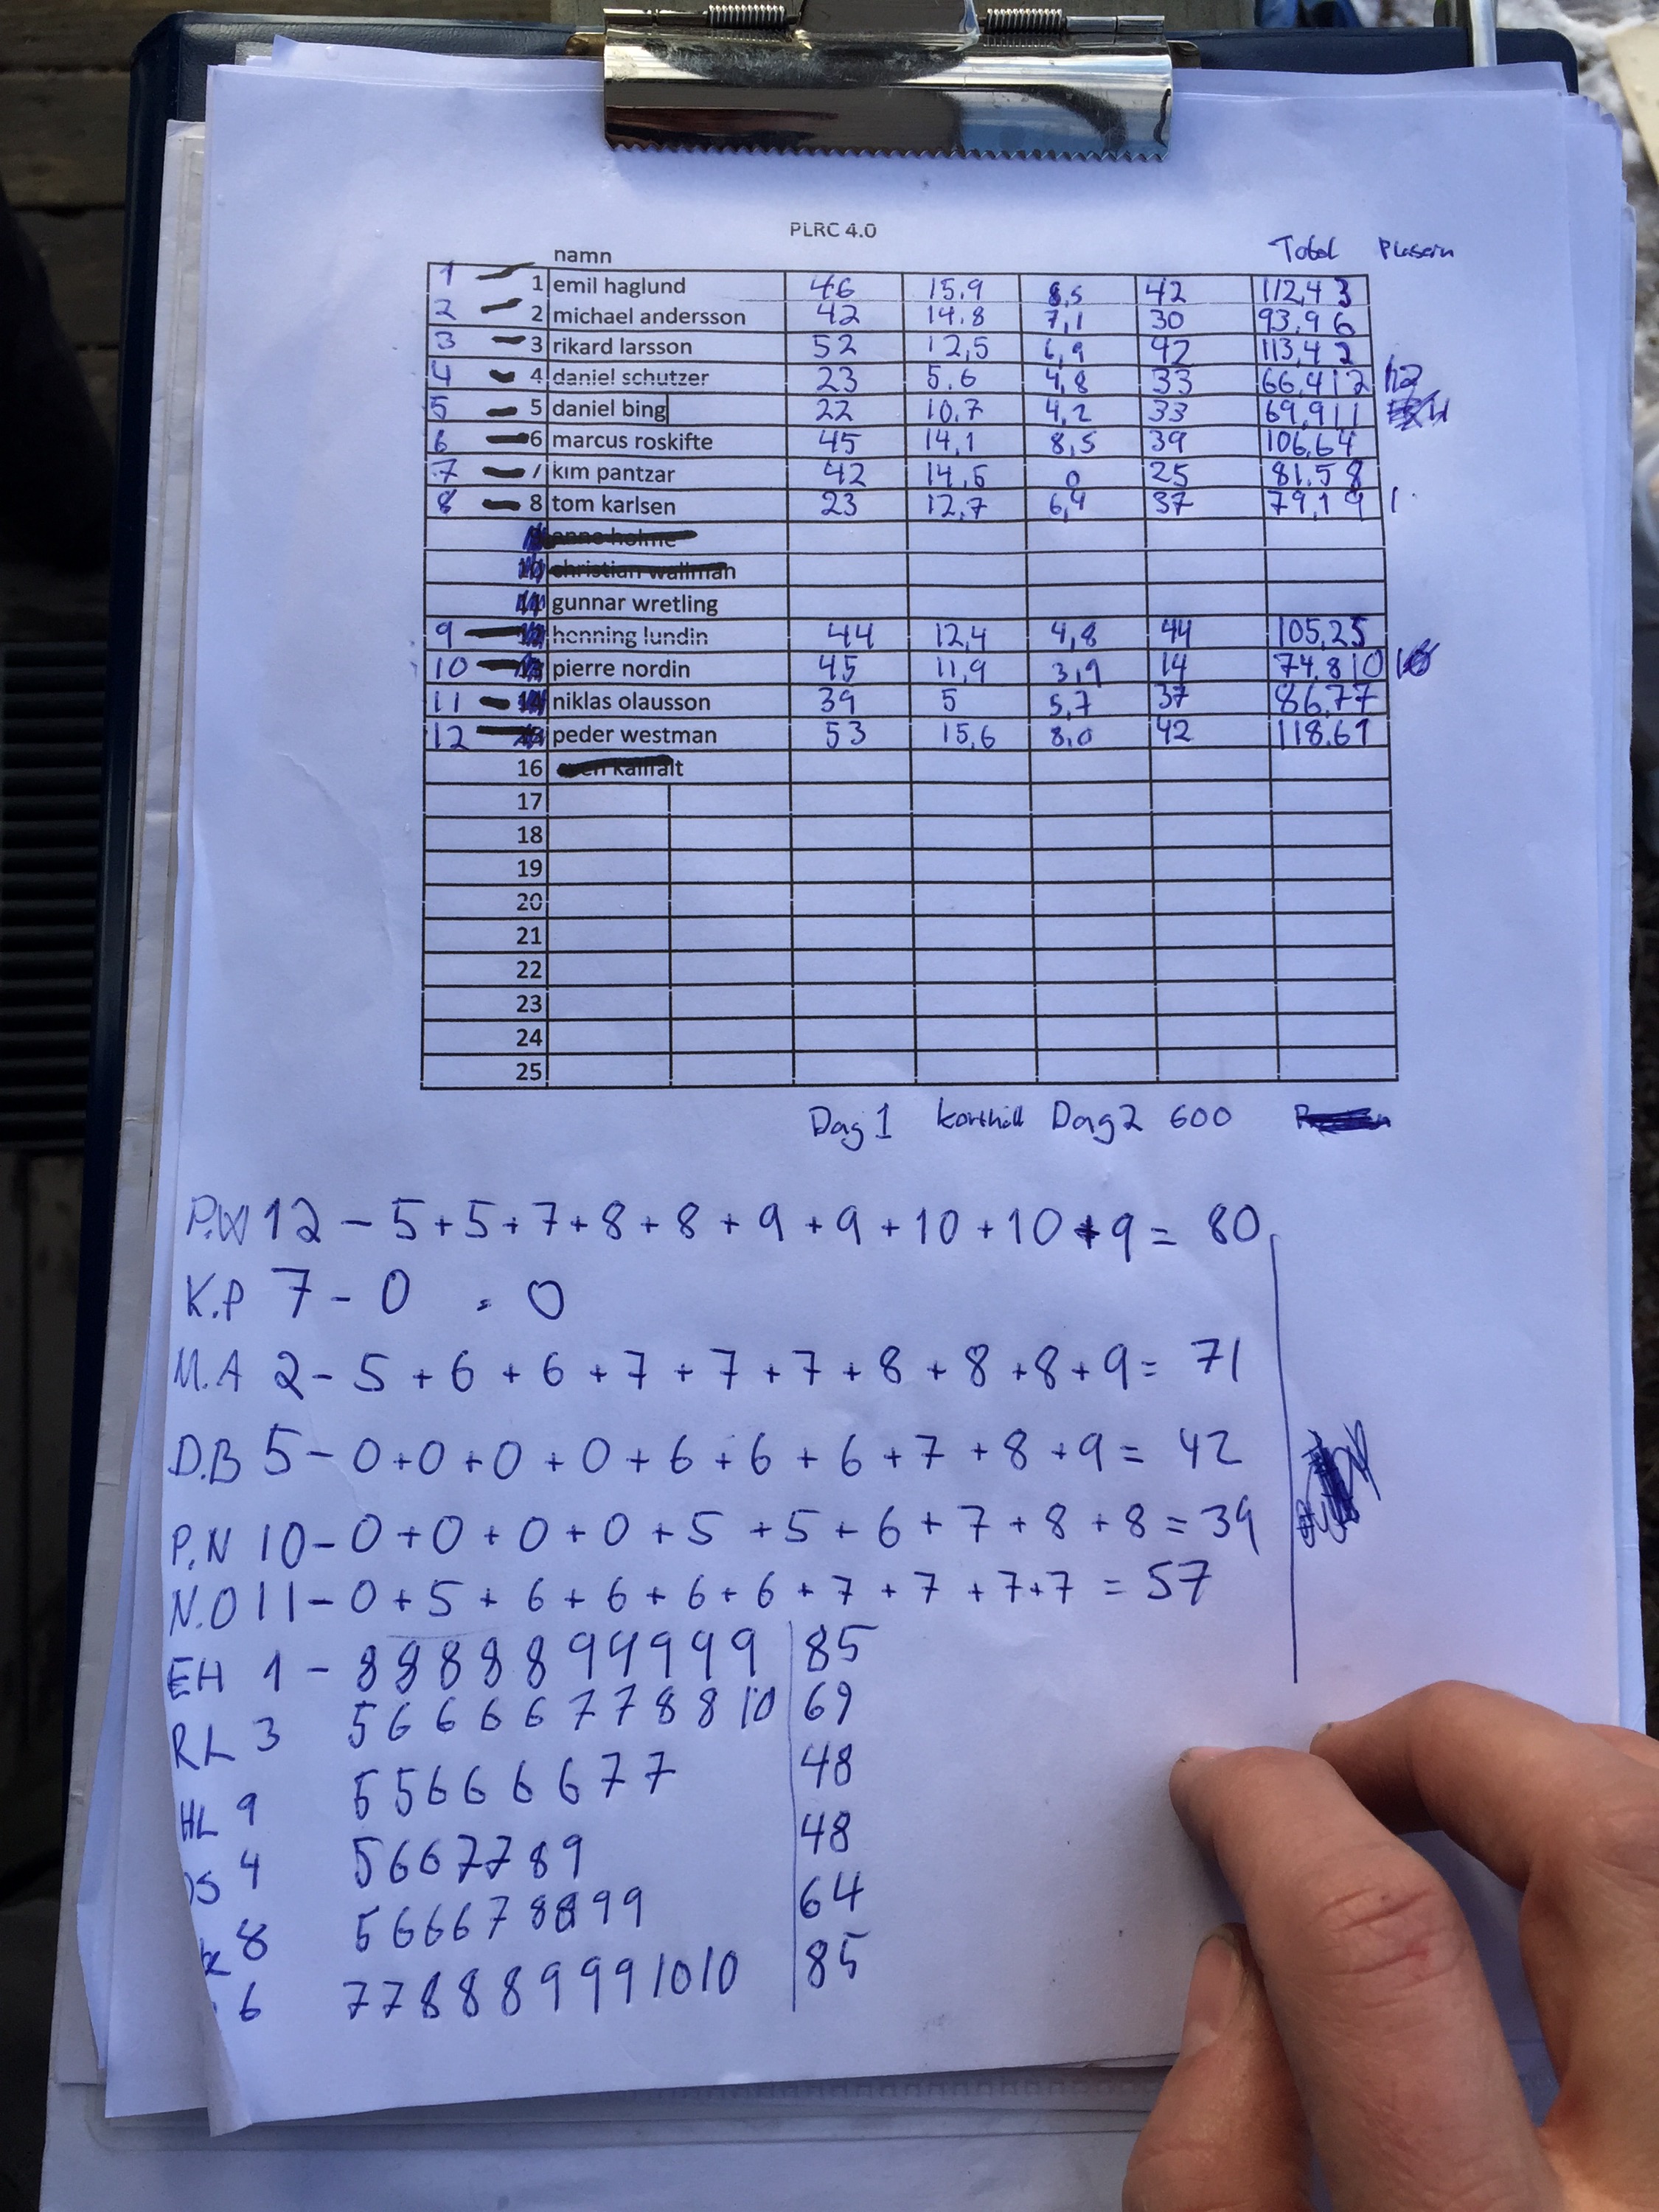 PLRC 4.0
namn Total
1 1 emil haglund 46 15,9 8,5 42 112,4 3
2 2 michael andersson 42 14,8 7,1 30 93,9 6
3 3 rikard larsson 52 12,5 6,9 42 113,4 2
4 4 daniel schutzer 23 5,6 4,8 33 66,4 12 12
5 5 daniel bing 22 10,7 4,2 33 69,9 11 11
6 6 marcus roskifte 45 14,1 8,5 39 106,6 4
7 7 kim pantzar 42 14,6 0 25 81,5 8
8 8 tom karlsen 23 12,7 6,4 37 79,1 9
anne holme
christian wallman
gunnar wretling
9 henning lundin 44 12,4 4,8 44 105,2 5
10 pierre nordin 45 11,9 3,9 14 74,8 10
11 niklas olausson 39 5 5,7 37 86,7 7
12 peder westman 53 15,6 8,0 42 118,6 1
16
17
18
19
20
21
22
23
24
25
Dag 1 korthåll Dag 2 600
P.W 12 - 5+5+7+8+8+9+9+10+10+9= 80
K.P 7 - 0 = 0
M.A 2 - 5+6+6+7+7+7+8+8+8+9= 71
D.B 5 - 0+0+0+0+6+6+6+7+8+9= 42
P.N 10 - 0+0+0+0+5+5+6+7+8+8= 39
N.O 11 - 0+5+6+6+6+6+7+7+7+7 = 57
EH 1 - 8 8 8 8 8 9 9 9 9 9 85
RL 3 5 6 6 6 6 7 7 8 8 10 69
HL 9 5 5 6 6 6 6 7 7 48
DS 4 5 6 6 7 7 8 9 48
8 5 6 6 6 7 8 8 9 9 64
6 7 7 8 8 8 9 9 9 10 10 85